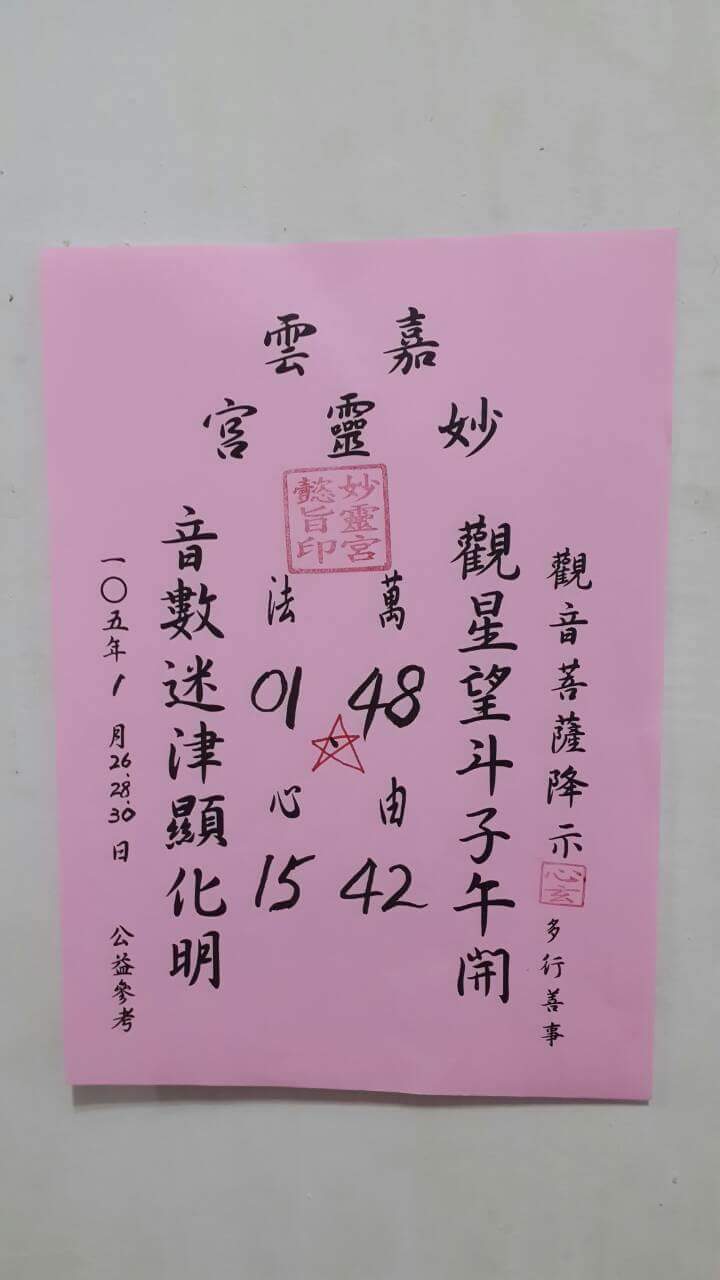 嘉雲
妙靈宮
妙靈宮
懿旨印
觀音菩薩降示
心玄
多行善事
觀星望斗子午開
萬法
48 01
由心
42 15
音數迷津顯化明
一〇五年1月26.28.30日
公益參考